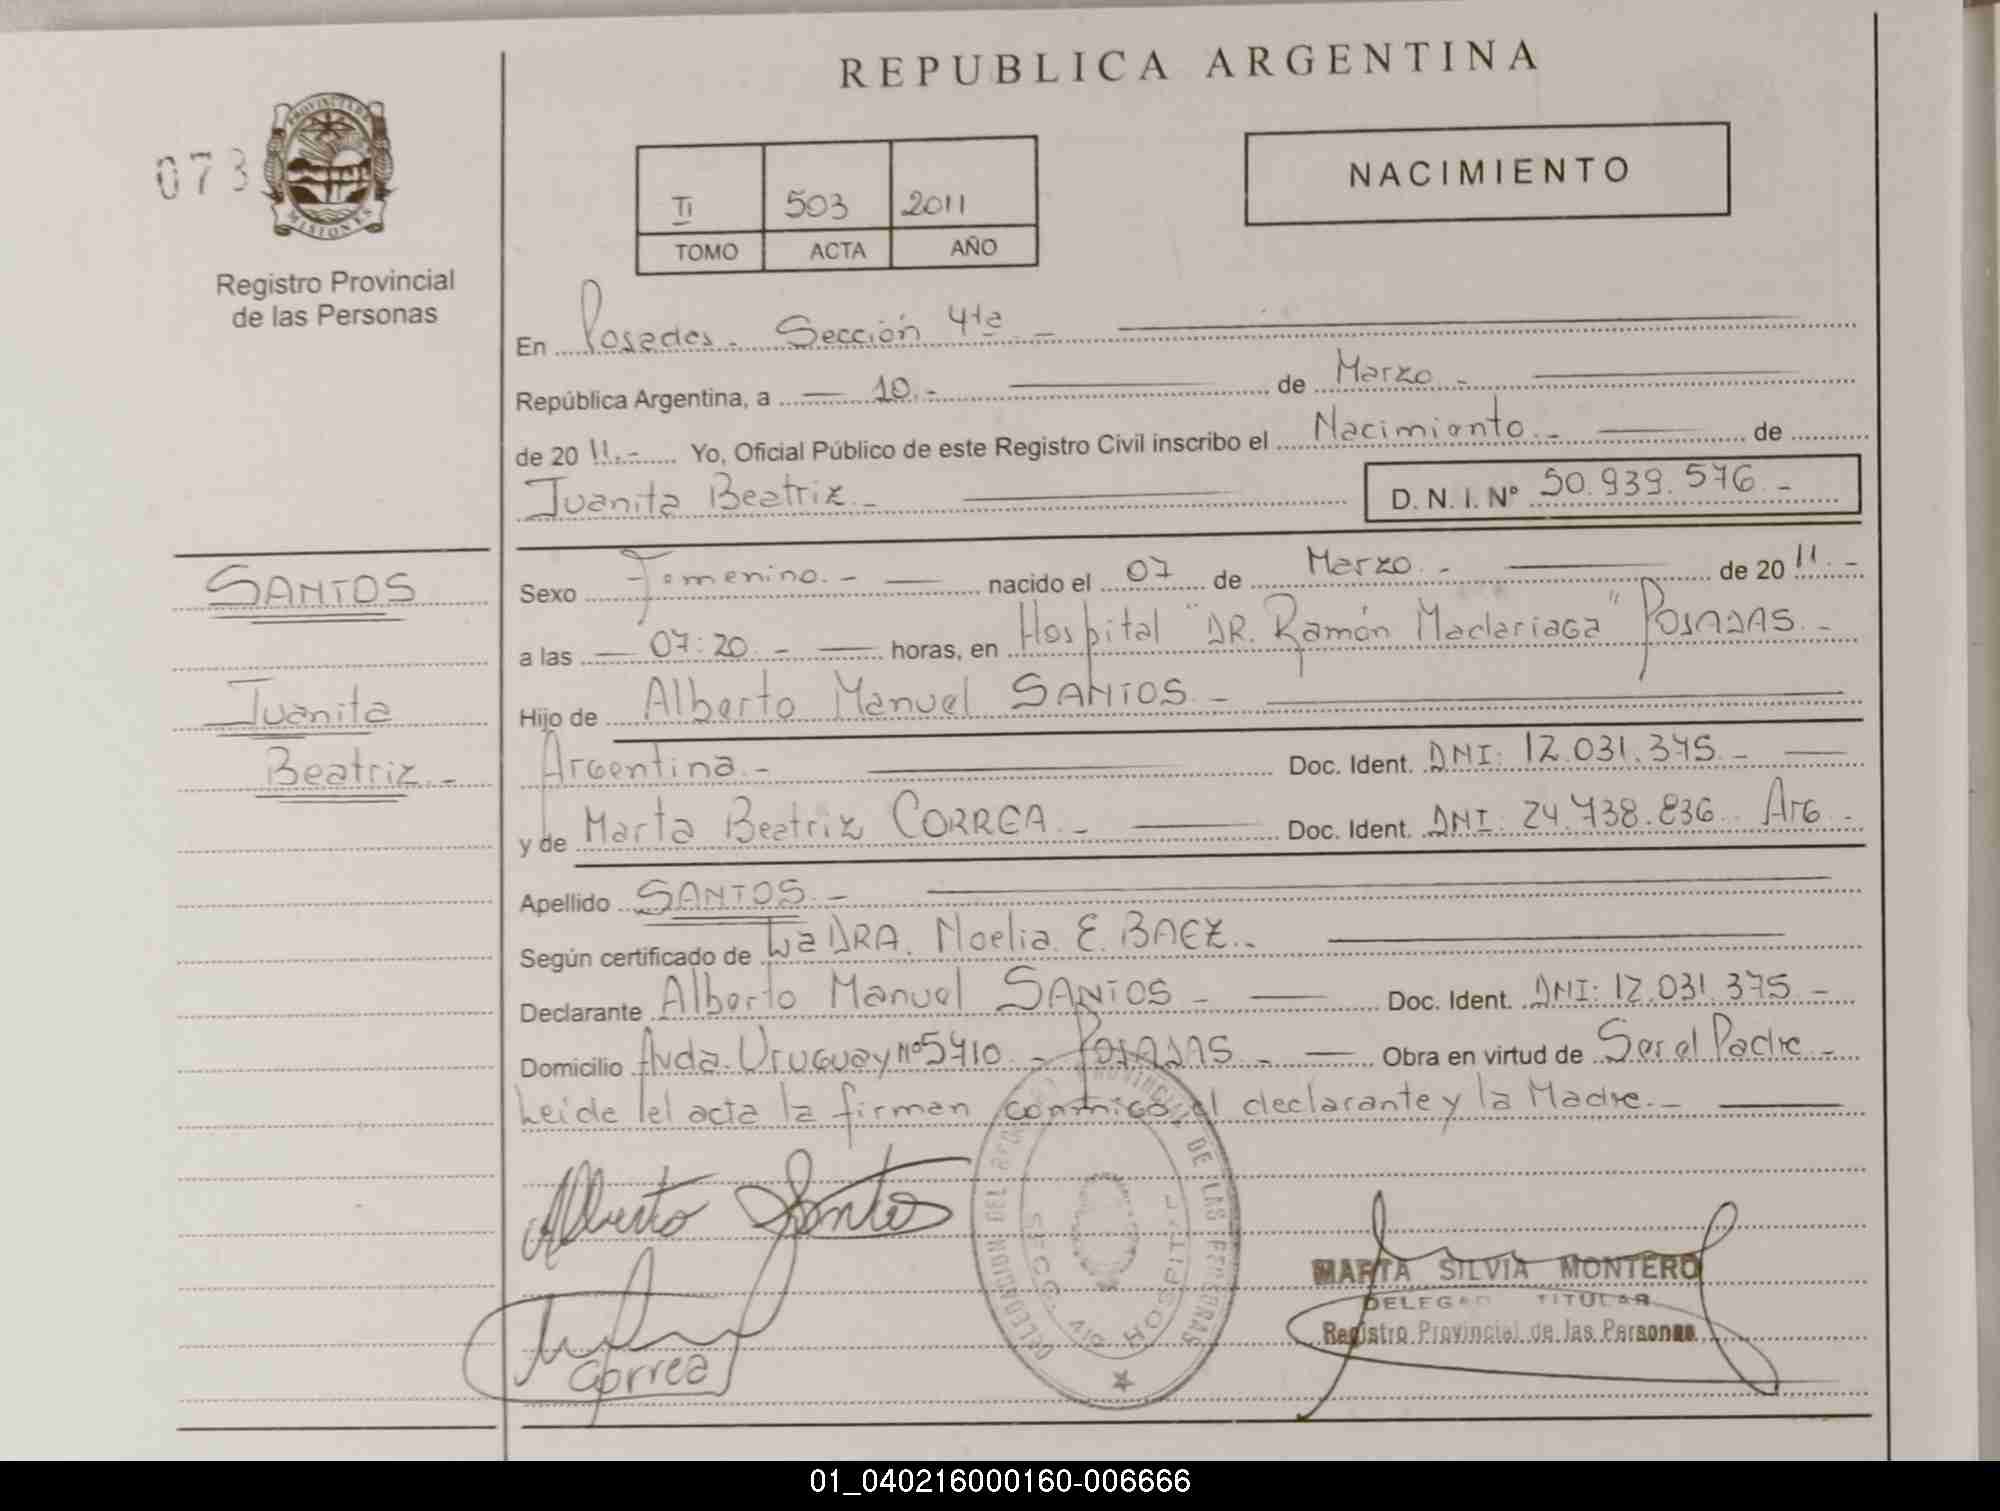 REPUBLICA ARGENTINA
073
PROVINCIA DE
MISIONES
Registro Provincial
de las Personas
TI 503 2011
TOMO ACTA AÑO
NACIMIENTO
En Posadas - Sección 4ta -
República Argentina, a — 10.- de Marzo -
de 2011.- Yo, Oficial Público de este Registro Civil inscribo el Nacimiento.- de
Juanita Beatriz.- D. N. I. Nº 50.939.576.-
SANTOS
Juanita
Beatriz.-
Sexo Femenino.- nacido el 07 de Marzo.- de 2011.-
a las — 07:20.- horas, en Hospital "DR. Ramón Madariaga" POSADAS.-
Hijo de Alberto Manuel SANTOS.-
Argentina.- Doc. Ident. DNI: 12.031.375.-
y de Marta Beatriz CORREA.- Doc. Ident. DNI: 24.738.836 Arg.-
Apellido SANTOS.-
Según certificado de La DRA. Noelia E. BAEZ.-
Declarante Alberto Manuel SANTOS - Doc. Ident. DNI: 12.031.375-
Domicilio Avda. Uruguay Nº5410 - POSADAS - Obra en virtud de Ser el Padre -
Leida el acta la firman conmigo el declarante y la Madre.-
Alberto Santos
Correa
DELEGACION DEL REGISTRO PROVINCIAL DE LAS PERSONAS
SECC. 4ta HOSPITAL
MARTA SILVIA MONTERO
DELEGADO TITULAR
Registro Provincial de las Personas
01_040216000160-006666